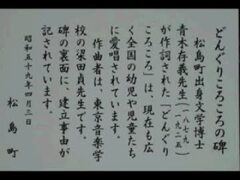 どんぐりころころの碑
松島町出身文学博士
青木存義先生(一八七九
｜一九三五)
が作詞された「どんぐり
ころころ」は、現在も広
く全国の幼児や児童たち
に愛唱されています。
作曲者は、東京音楽学
校の梁田貞先生です。
碑の裏面に、建立事由が
記されています。
昭和五十九年四月三日
松島町